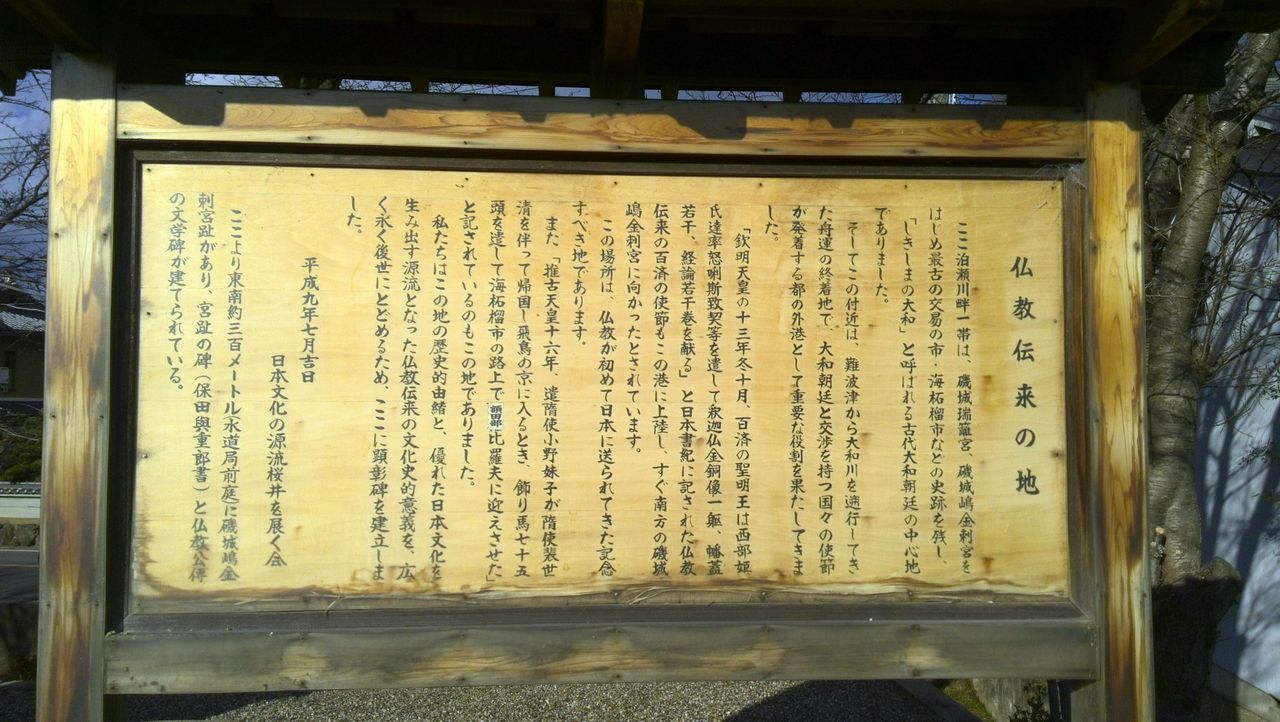 仏教伝来の地
ここ泊瀬川畔一帯は、磯城瑞籬宮、磯城嶋金刺宮を
はじめ最古の交易の市・海柘榴市などの史跡を残し、
「しきしまの大和」と呼ばれる古代大和朝廷の中心地
でありました。
そしてこの付近は、難波津から大和川を遡行してき
た舟運の終着地で、大和朝廷と交渉を持つ国々の使節
が発着する都の外港として重要な役割を果たしてきま
した。
「欽明天皇の十三年冬十月、百済の聖明王は西部姫
氏達率怒唎斯致契等を遣して釈迦仏金銅像一軀、幡蓋
若干、経論若干巻を献る」と日本書紀に記された仏教
伝来の百済の使節もこの港に上陸し、すぐ南方の磯城
嶋金刺宮に向かったとされています。
この場所は、仏教が初めて日本に送られてきた記念
すべき地であります。
また「推古天皇十六年、遣隋使小野妹子が隋使裴世
清を伴って帰国し飛鳥の京に入るとき、飾り馬七十五
頭を遣して海柘榴市の路上で額田部比羅夫に迎えさせた」
と記されているのもこの地でありました。
私たちはこの地の歴史的由緒と、優れた日本文化を
生み出す源流となった仏教伝来の文化史的意義を、広
く永く後世にとどめるため、ここに顕彰碑を建立しま
した。
平成九年七月吉日
日本文化の源流桜井を展く会
ここより東南約三百メートル水道局前庭に磯城嶋金
刺宮趾があり、宮趾の碑（保田與重郎書）と仏教公伝
の文学碑が建てられている。